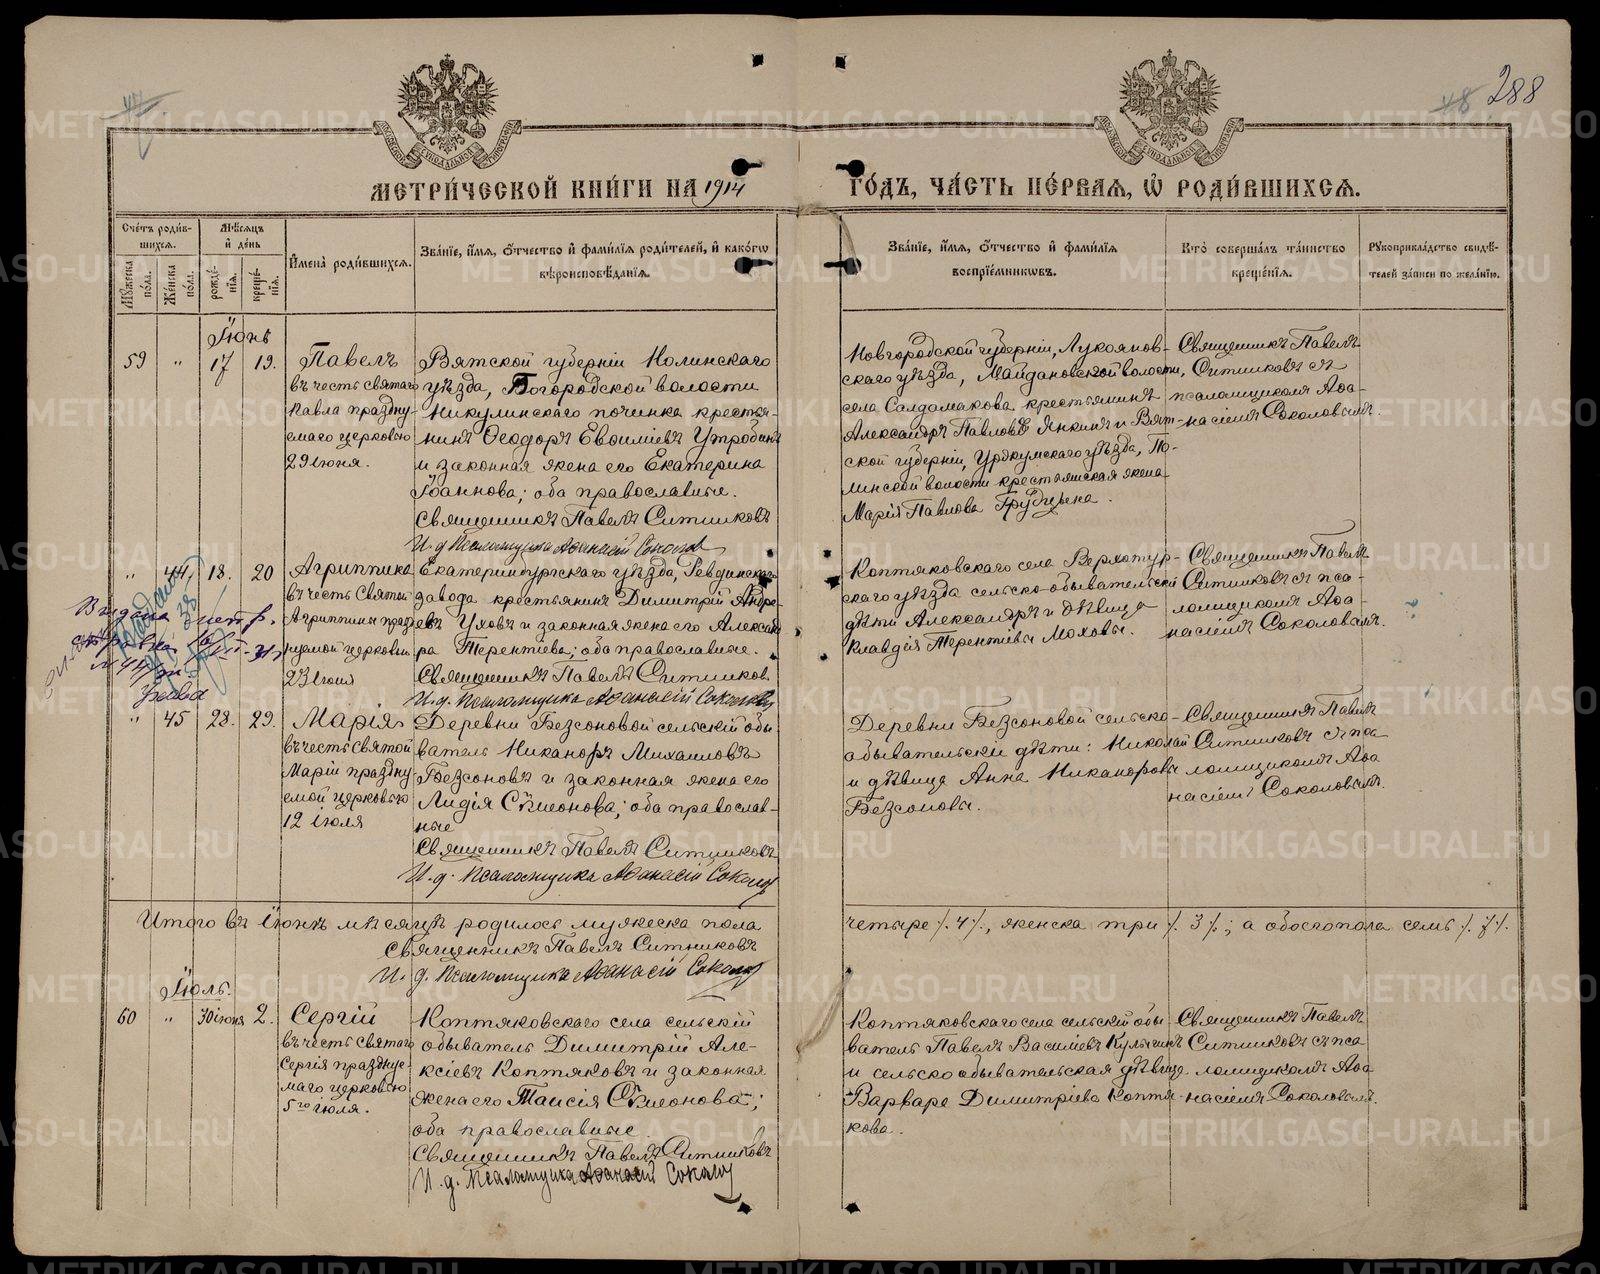 288
МЕТРИ́ЧЕСКОЙ КНИ́ГИ НА 1914 ГО́ДЪ, ЧА́СТЬ ПЕ́РВАѦ, Ѡ҆ РОДИ́ВШИХСѦ.
Сче́тъ роди́в-
шихсѧ.
Мѣ́сѧцъ
и҆ де́нь
Мꙋ́жеска по́ла.
Же́нска по́ла.
рожде́-
нїѧ.
креще́-
нїѧ.
И҆мена̀ роди́вшихсѧ.
Зва́нїе, и҆́мѧ, ѻ҆́тчество и҆ фами́лїѧ роди́телей, и҆ како́гѡ
вѣроисповѣ́данїѧ.
Зва́нїе, и҆́мѧ, ѻ҆́тчество и҆ фами́лїѧ
воспрїе́мниковъ.
Кто̀ соверша́лъ та́инство
креще́нїѧ.
Рꙋкоприкла́дство свидѣ́-
телей за́писи по жела́нїю.
Іюнь
59 " 17 19.
Павелъ
въ честь святаго
Павла праздну-
емаго церковью
29 Іюня.
Вятской губерніи Нолинскаго
уѣзда, Богородской волости
Никулинскаго починка крестья-
нинъ Ѳеодоръ Евѳиміевъ Утробинъ
и законная жена его Екатерина
Іоаннова; оба православные.
Священникъ Павелъ Ситниковъ
И. д. Псаломщика Аѳанасій Соколовъ
Новгородской губерніи, Лукоянов-
скаго уѣзда, Майдановской волости,
села Салдоманова крестьянинъ
Александръ Павловъ Янкинъ и Вят-
ской губерніи, Уржумскаго уѣзда, То-
линской волости крестьянская жена
Марія Павлова Грудцына.
Священникъ Павелъ
Ситниковъ съ
псаломщикомъ Аѳа-
насіемъ Соколовымъ.
" 44 18. 20
Агриппина
въ честь Святой
Агриппины праз
нуемой церковью
23 Іюня
Екатеринбургскаго уѣзда, Ревдинскаго
завода крестьянинъ Димитрій Андре-
евъ Уховъ и законная жена его Алексан
ра Терентіева; оба православные.
Священникъ Павелъ Ситниковъ
И. д. Псаломщика Аѳанасій Соколовъ
Коптяковскаго села Верхотур-
скаго уѣзда сельско-обывательскія
дѣти Александръ и дѣвица
Клавдія Терентіевы Моховы.
Священникъ Павелъ
Ситниковъ съ пса-
ломщикомъ Аѳа-
насіемъ Соколовымъ.
" 45 28. 29.
Марія
въ честь святой
Маріи праздну
емой церковью
12 іюля
Деревни Безсоновой сельскій обы
ватель Никаноръ Михаиловъ
Безсоновъ и законная жена его
Лидія Сѵмеонова; оба православ-
ные
Священникъ Павелъ Ситниковъ
И. д. Псаломщика Аѳанасій Соколовъ
Деревни Безсоновой сельско-
обывательскіе дѣти: Николай
и дѣвица Анна Никаноровы
Безсоновы.
Священникъ Павелъ
Ситниковъ съ пса
ломщикомъ Аѳа
насіемъ Соколовымъ.
Итого въ Іюнѣ мѣсяцѣ родилось мужеска пола четыре /. 4 /., женска три /. 3 /.; а обоего пола семь /. 7 /.
Священникъ Павелъ Ситниковъ
И. д. Псаломщика Аѳанасій Соколовъ
Іюль.
60 " 30 іюня 2.
Сергій
въ честь святаго
Сергія празднуе-
маго церковью
5го іюля.
Коптяковскаго села сельскій
обыватель Димитрій Але-
ксіевъ Коптяковъ и законная
жена его Таисія Сѵмеонова;
оба православные
Священникъ Павелъ Ситниковъ
И. д. Псаломщика Аѳанасій Соколовъ
Коптяковскаго села сельскій обы
ватель Павелъ Василіевъ Кулыгинъ
и сельско обывательская дѣвица
Варвара Димитріева Коптя-
кова.
Священникъ Павелъ
Ситниковъ съ пса
ломщикомъ Аѳа
насіемъ Соколовымъ.
METRIKI.GASO-URAL.RU